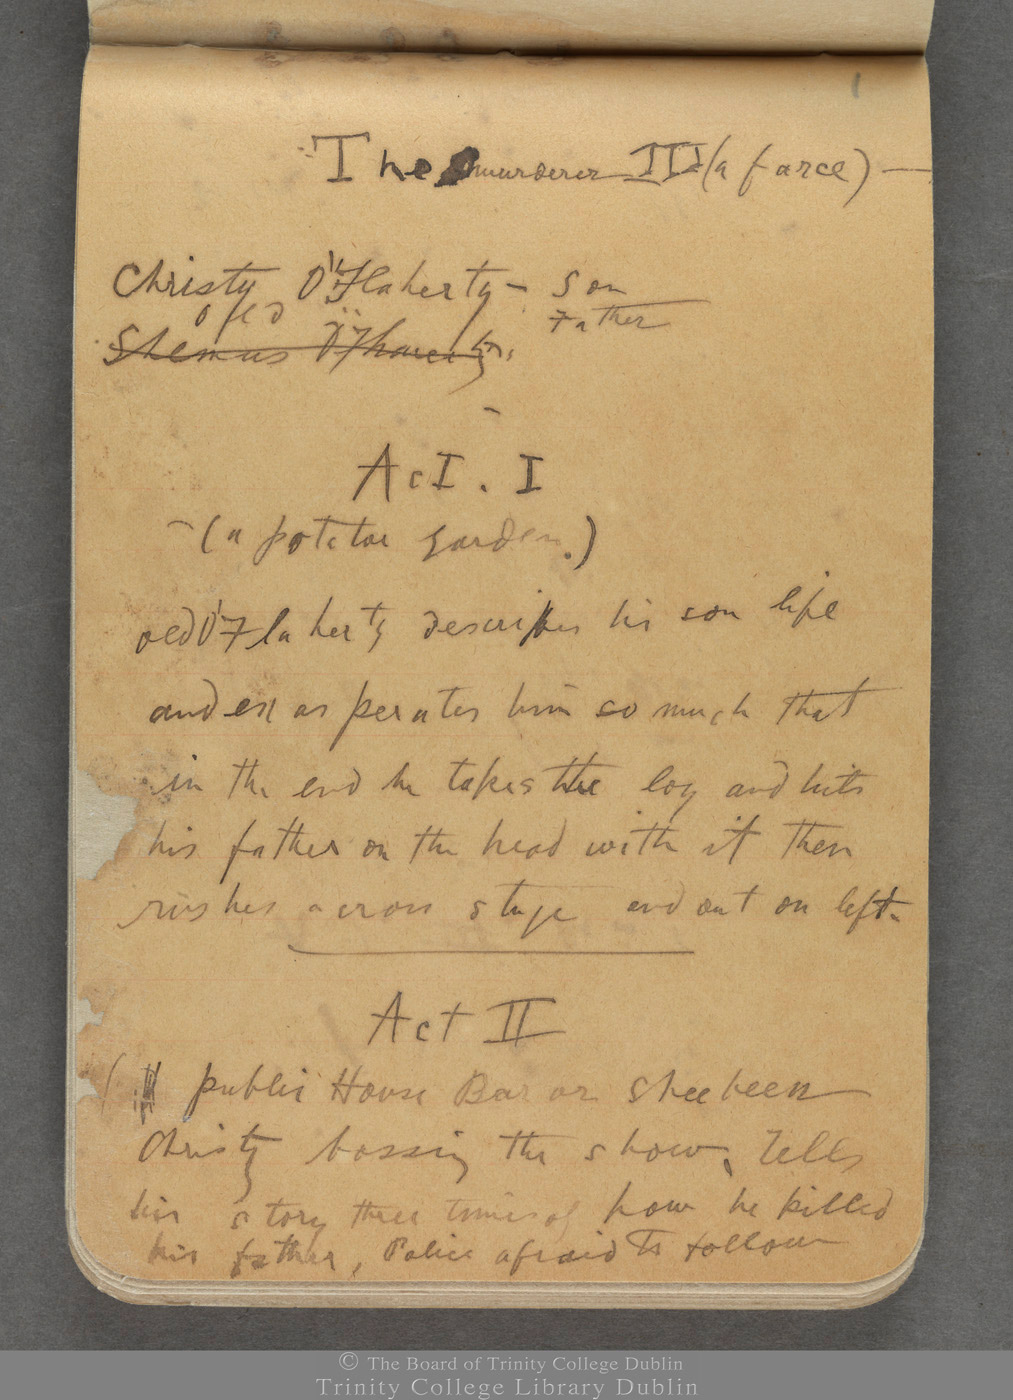 1
The murderer III (a farce) —
Christy O'Flaherty – Son
old Father
Shemus O'Flaherty
Act. I
(a potatoe garden.)
old O'Flaherty describes his son life
and exasperates him so much that
in the end he takes the loy and hits
his father on the head with it then
rushes across stage and out on left.
Act II
( public House Bar or Shebeen
Christy bossing the show, Tells
his story three times of how he killed
his father, Police afraid to follow
© The Board of Trinity College Dublin
Trinity College Library Dublin